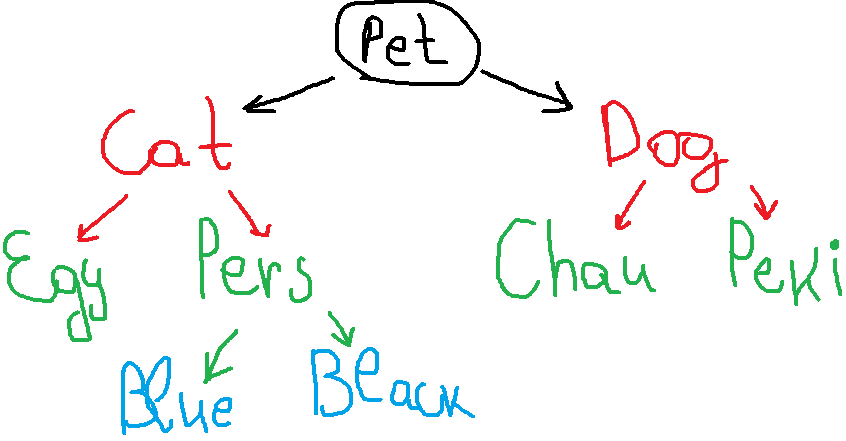 Pet
Cat Dog
Egy Pers Chau Peki
Blue Black